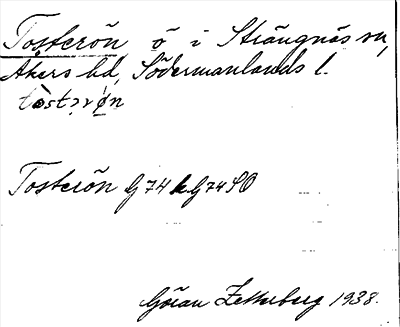 Tosterön ö i Strängnäs sn,
Åkers hd, Södermanlands l.
tòstərø̀n
Tosterön G74 k.G74SO
Göran Zetterberg 1938.